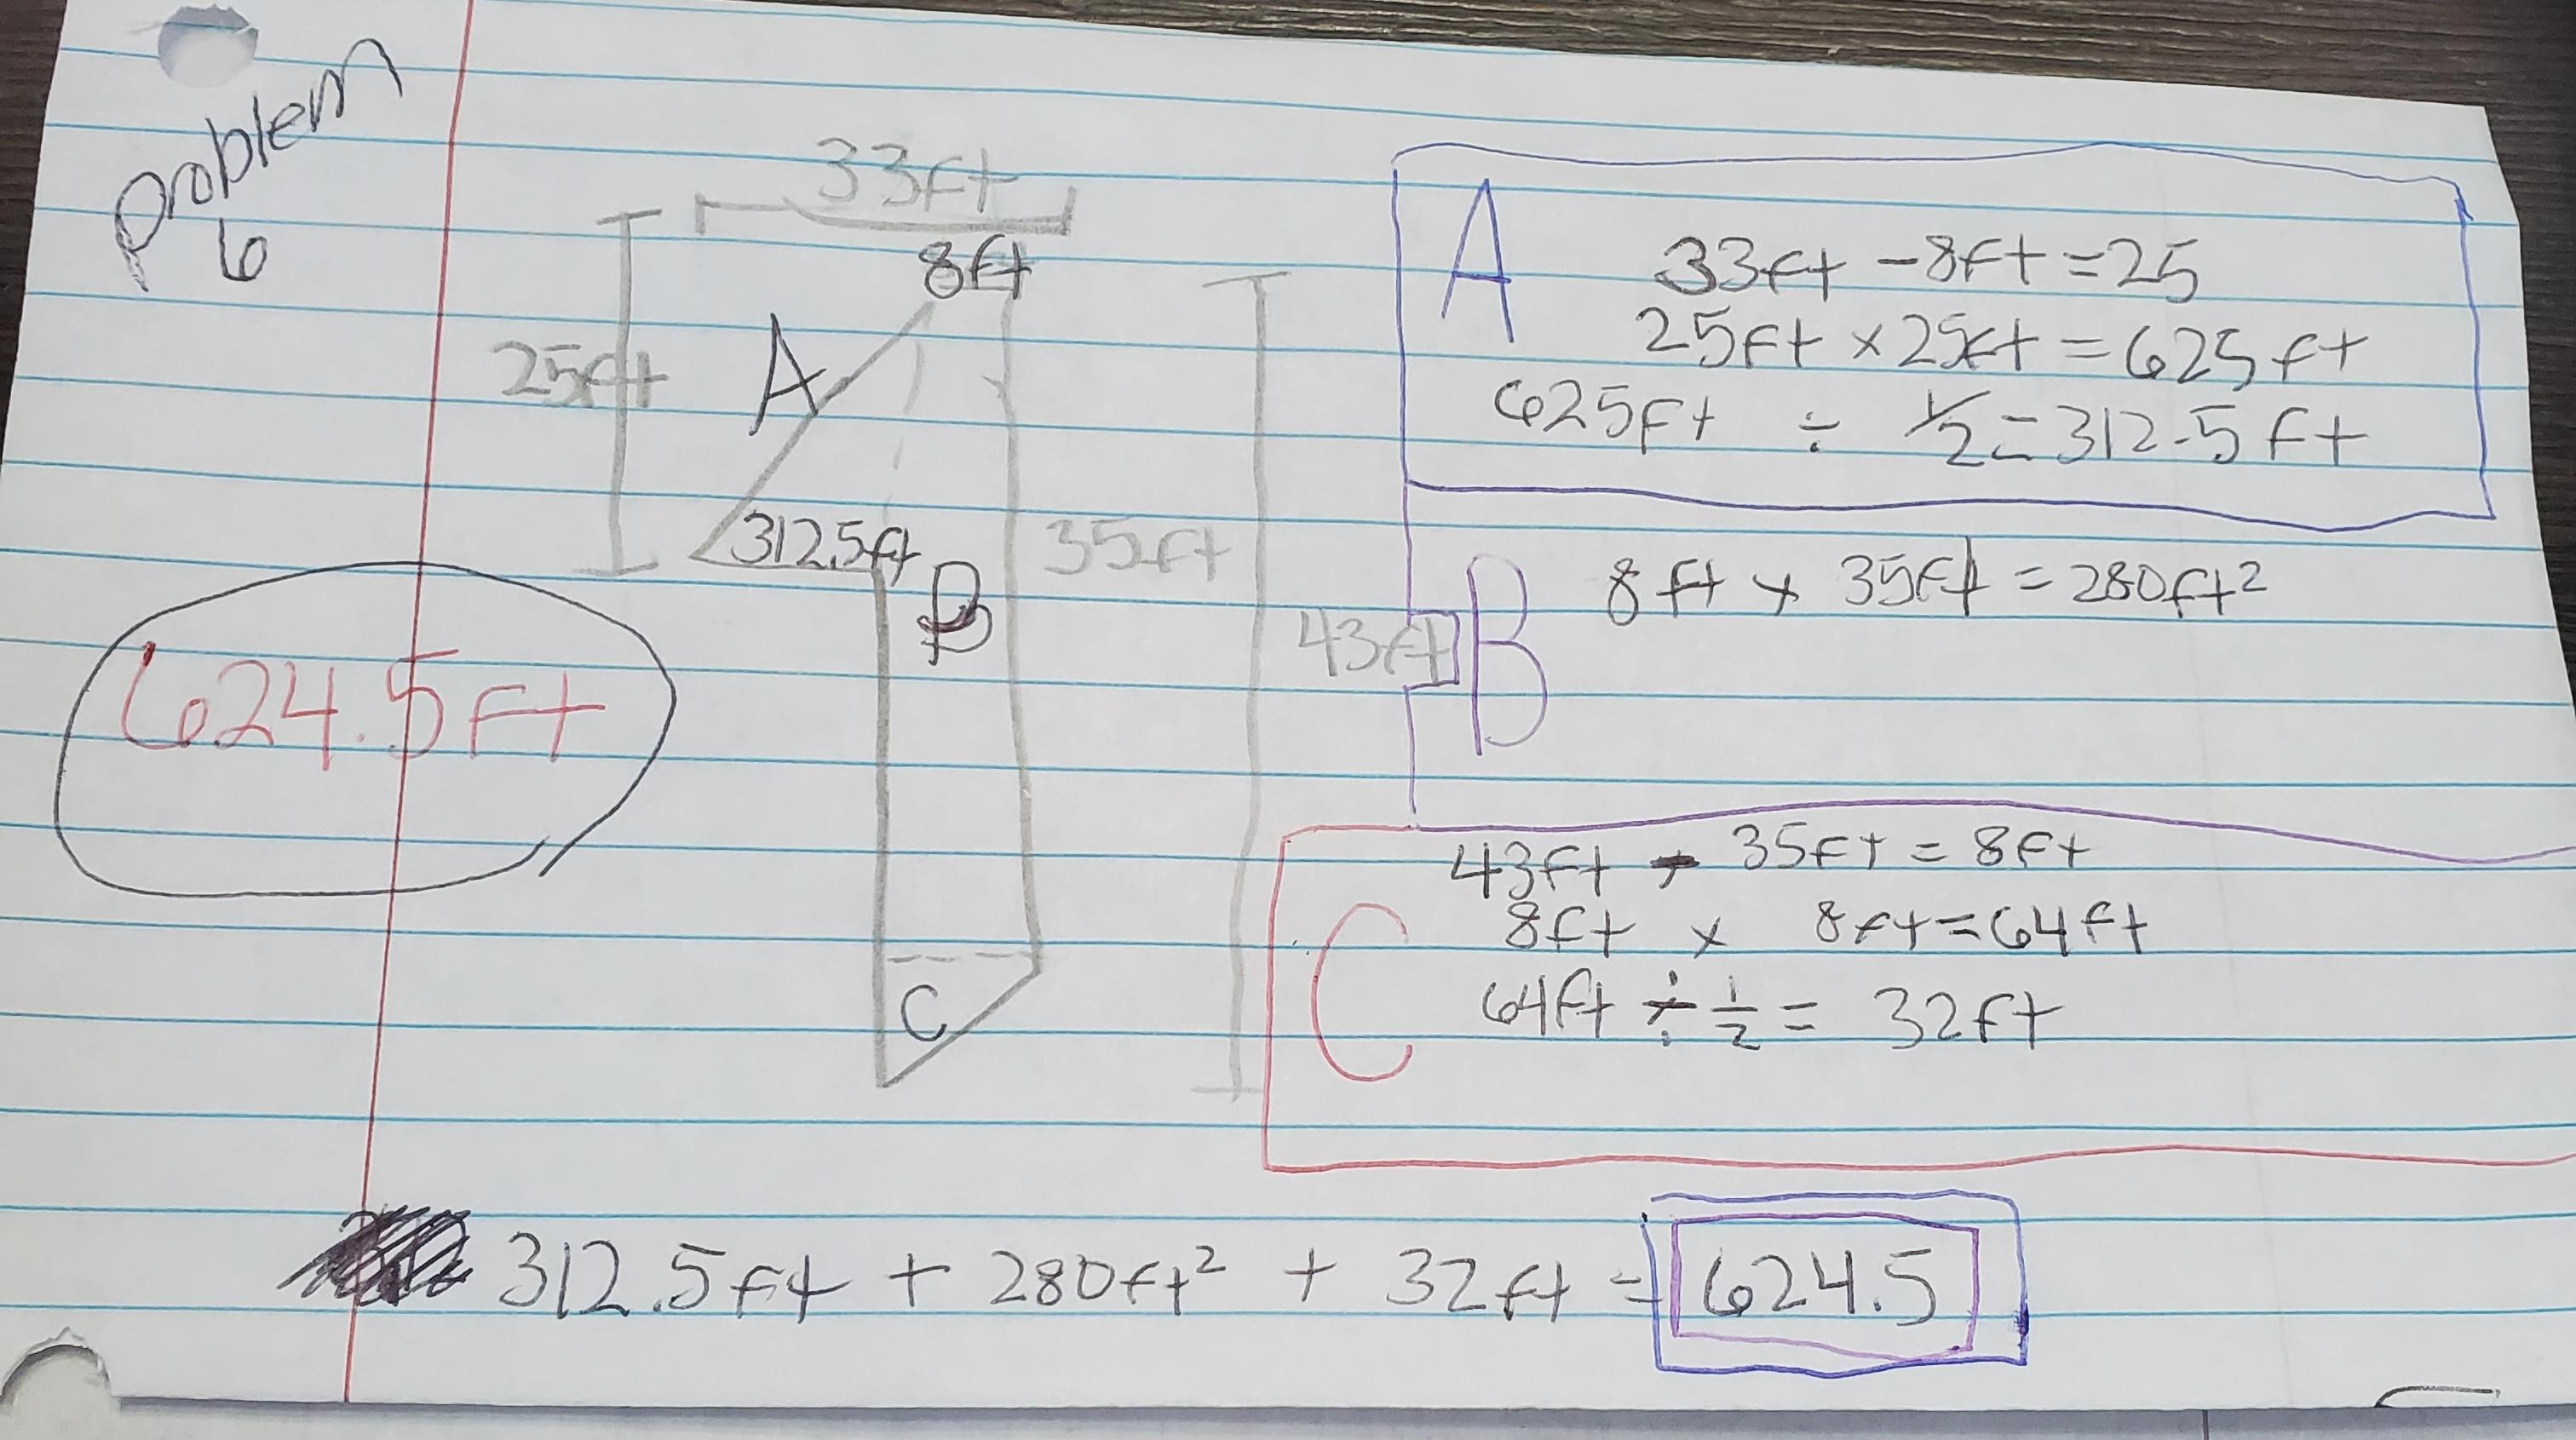 Problem
6
33ft
8ft
25ft
A
312.5ft
B
35ft
43ft
C
624.5ft
A
33ft - 8ft = 25
25ft x 25ft = 625ft
625ft ÷ 1/2 = 312.5ft
B
8ft x 35ft = 280ft²
C
43ft - 35ft = 8ft
8ft x 8ft = 64ft
64ft ÷ 1/2 = 32ft
312.5ft + 280ft² + 32ft = 624.5